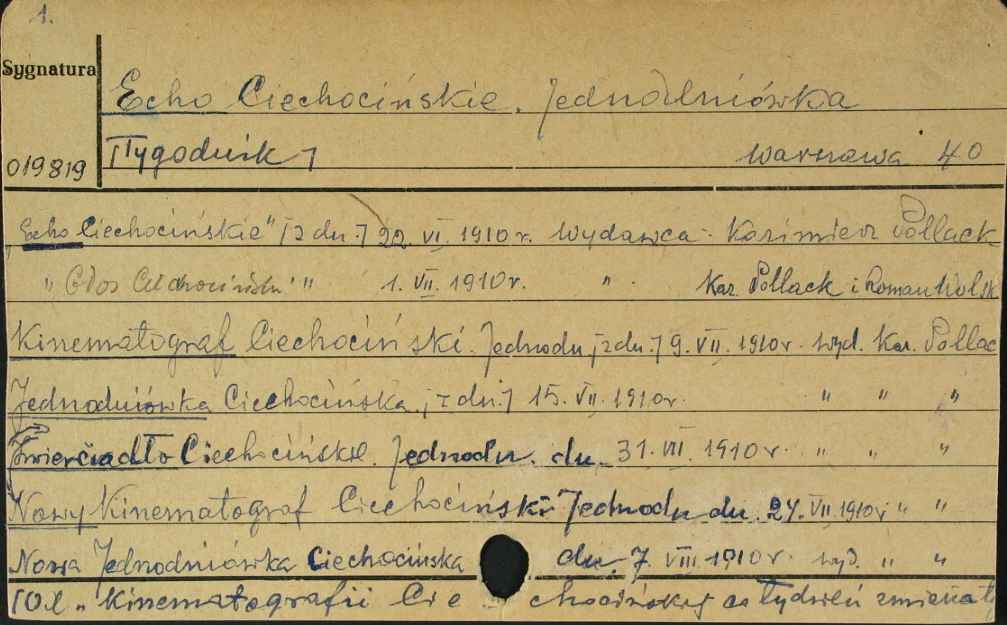 1.
Sygnatura
Echo Ciechocińskie. Jednodniówka
[Tygodnik]
Warszawa 40
019819
"Echo Ciechocińskie" [z dn.] 22. VI. 1910 r. Wydawca: Kazimierz Pollack
" Głos Ciechociński " " 1. VII. 1910 r. " Kaz. Pollack i Roman Wolsk
Kinematograf Ciechociński. Jednodn. [z dn.] 9. VII. 1910 r. wyd. Kaz. Pollac
Jednodniówka Ciechocińska. [z dn.] 15. VII. 1910 r. " " "
Zwierciadło Ciechocińskie. Jednodn. dn. 31. VII. 1910 r. " " "
Nowy Kinematograf Ciechociński Jednodn. dn. 24. VII. 1910 r. " "
Nowa Jednodniówka Ciechocińska dn. 7 VIII 1910 r. wyd. " "
[Od "Kinematografii Cie chocińskiej co tydzień zmieniał